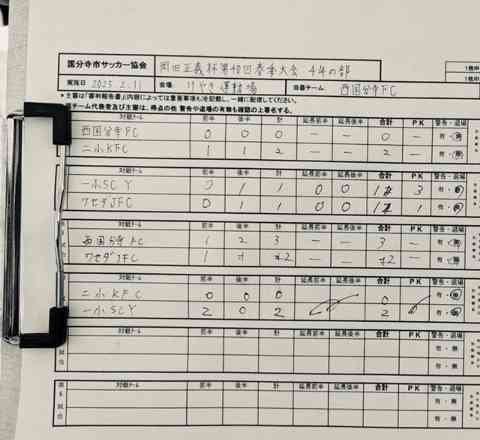 国分寺市サッカー協会 岡田正義杯第40回春季大会 4年の部
実施日 2025 2.11 会場: けやき運動場 当番チーム 西国分寺FC
★主審は「審判報告書」内容によっては重要事項も記載し、一緒に配信してください。
チーム代表者及び主審は、得点の他 警告や退場の有無も確認の上署名する。
対戦チーム 前半 後半 計 延長前半 延長後半 合計 PK 警告・退場
西国分寺FC 0 0 0 — — 0 — 有・無
二小KFC 1 1 2 — — 2 — 有・無
対戦チーム 前半 後半 計 延長前半 延長後半 合計 PK 警告・退場
一小SCY 1 1 0 0 1 3 有・無
ワセダJFC 0 1 1 0 0 1 1 有・無
対戦チーム 前半 後半 計 延長前半 延長後半 合計 PK 警告・退場
西国分寺FC 1 2 3 — — 3 — 有・無
ワセダJFC 1 2 — — 2 — 有・無
対戦チーム 前半 後半 計 延長前半 延長後半 合計 PK 警告・退場
二小KFC 0 0 0 0 有・無
一小SCY 2 0 2 2 有・無
対戦チーム 前半 後半 計 延長前半 延長後半 合計 PK 警告・退場
有・無
有・無
対戦チーム 前半 後半 計 延長前半 延長後半 合計 PK 警告・退場
有・無
有・無